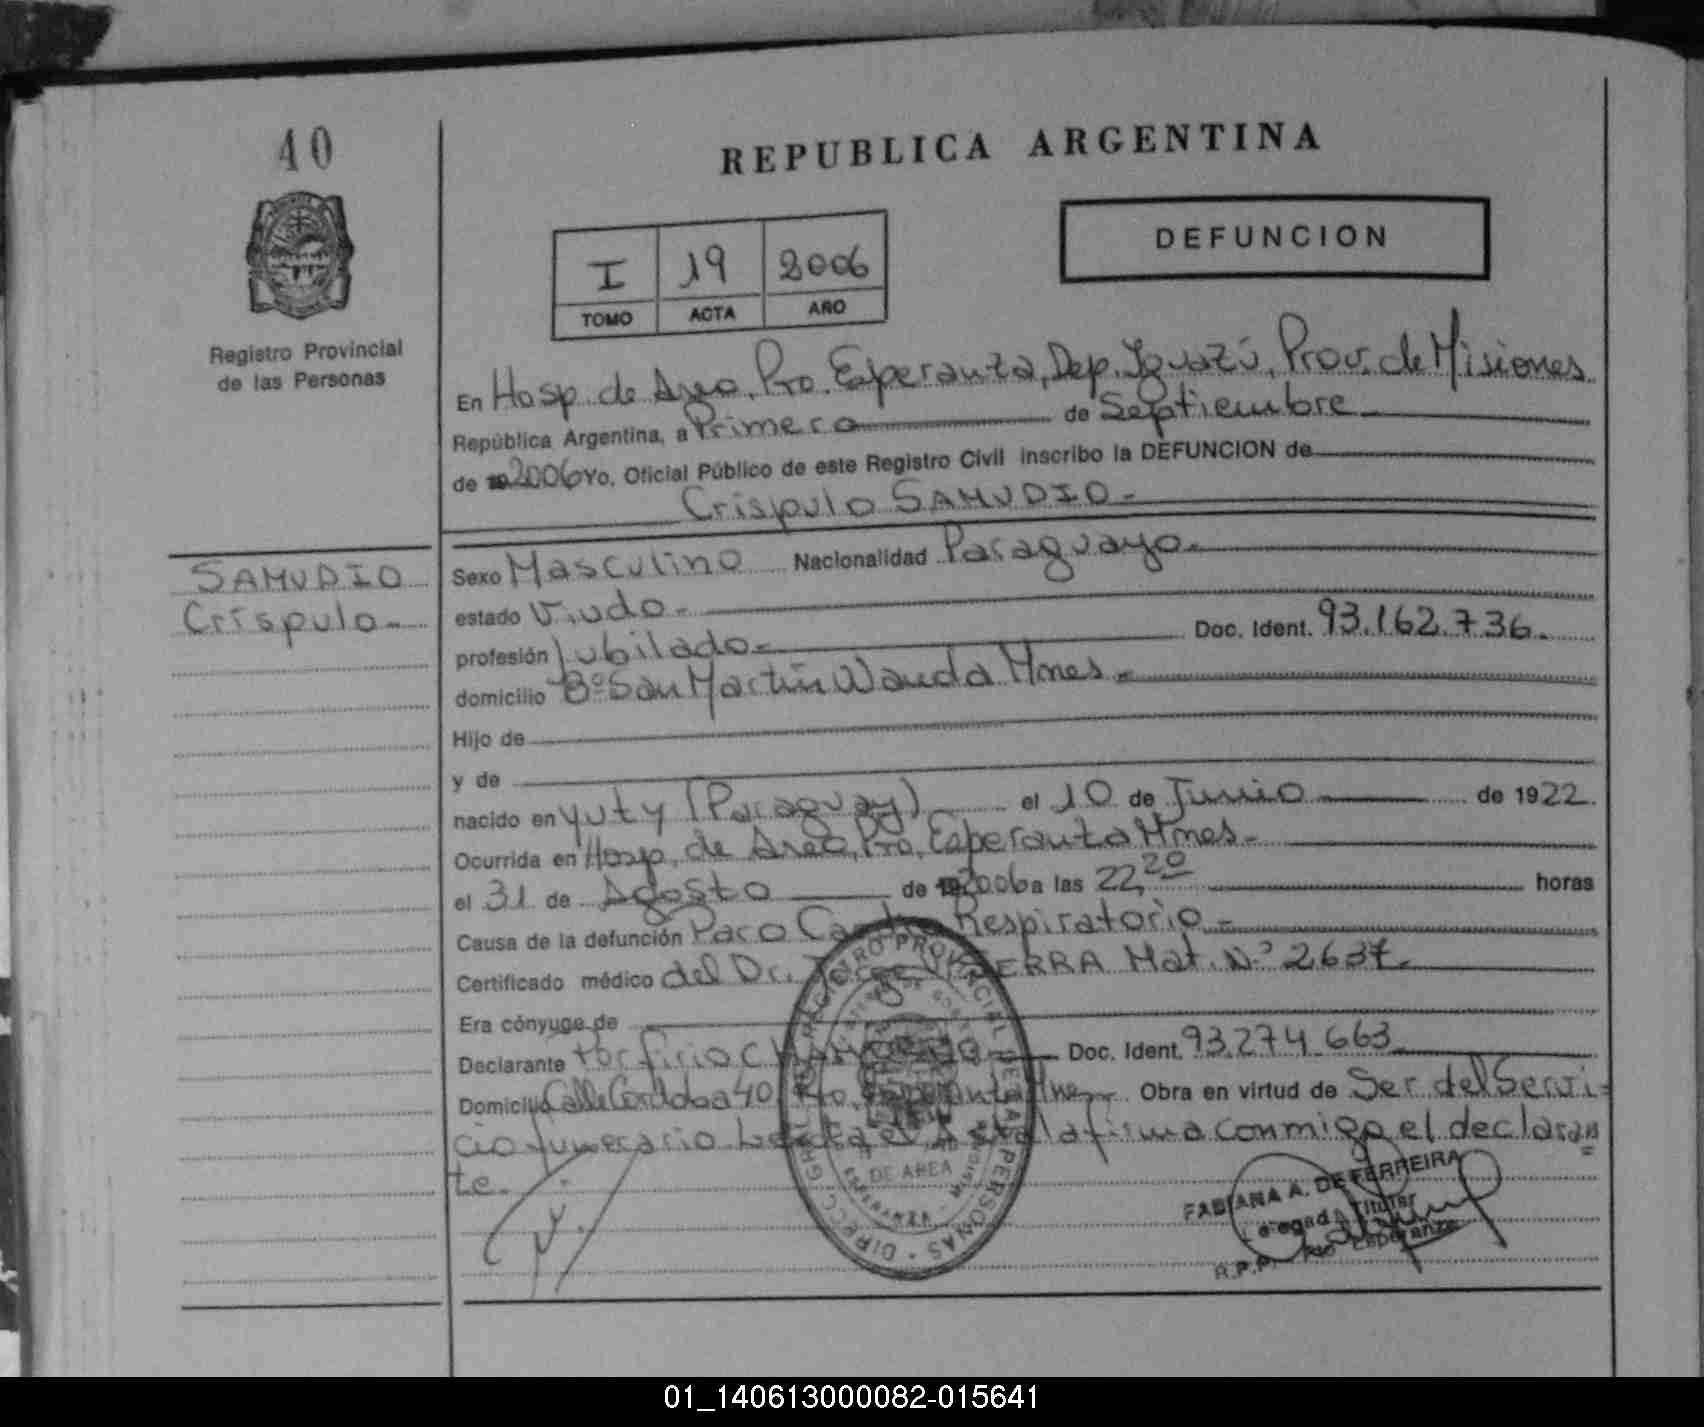 40
REPUBLICA ARGENTINA
DEFUNCION
I 19 2006
TOMO ACTA AÑO
Registro Provincial
de las Personas
En Hosp. de Area, Pto. Esperanza, Dep. Iguazú, Prov. de Misiones
República Argentina, a Primero de Septiembre
de 2006 Yo, Oficial Público de este Registro Civil inscribo la DEFUNCION de
Críspulo SAMUDIO.-
SAMUDIO
Críspulo.-
Sexo Masculino Nacionalidad Paraguayo.-
estado Viudo.-
profesión Jubilado.- Doc. Ident. 93.162.736.
domicilio Bº San Martín Wanda Mnes.-
Hijo de
y de
nacido en Yuty (Paraguay) el 10 de Junio de 1922.
Ocurrida en Hosp. de Area, Pto. Esperanza Mnes.-
el 31 de Agosto de 2006 a las 22,20 horas
Causa de la defunción Paro Cardio Respiratorio.-
Certificado médico del Dr. Mat. Nº 2637.
Era cónyuge de
Declarante Porfirio Doc. Ident. 93.274.663
Domicilio Calle Córdoba 40 Pto. Esperanza Mnes. Obra en virtud de Ser del Servi=
cio funerario Leída el Acta la firma conmigo el declaran
te.
DIRECC. GRAL. REGISTRO PROVINCIAL DE LAS PERSONAS
DE AREA
ESPERANZA - MISIONES
FABIANA A. DE FERREIRA
Delegada Titular
R.P.P. Pto Esperanza
01_140613000082-015641